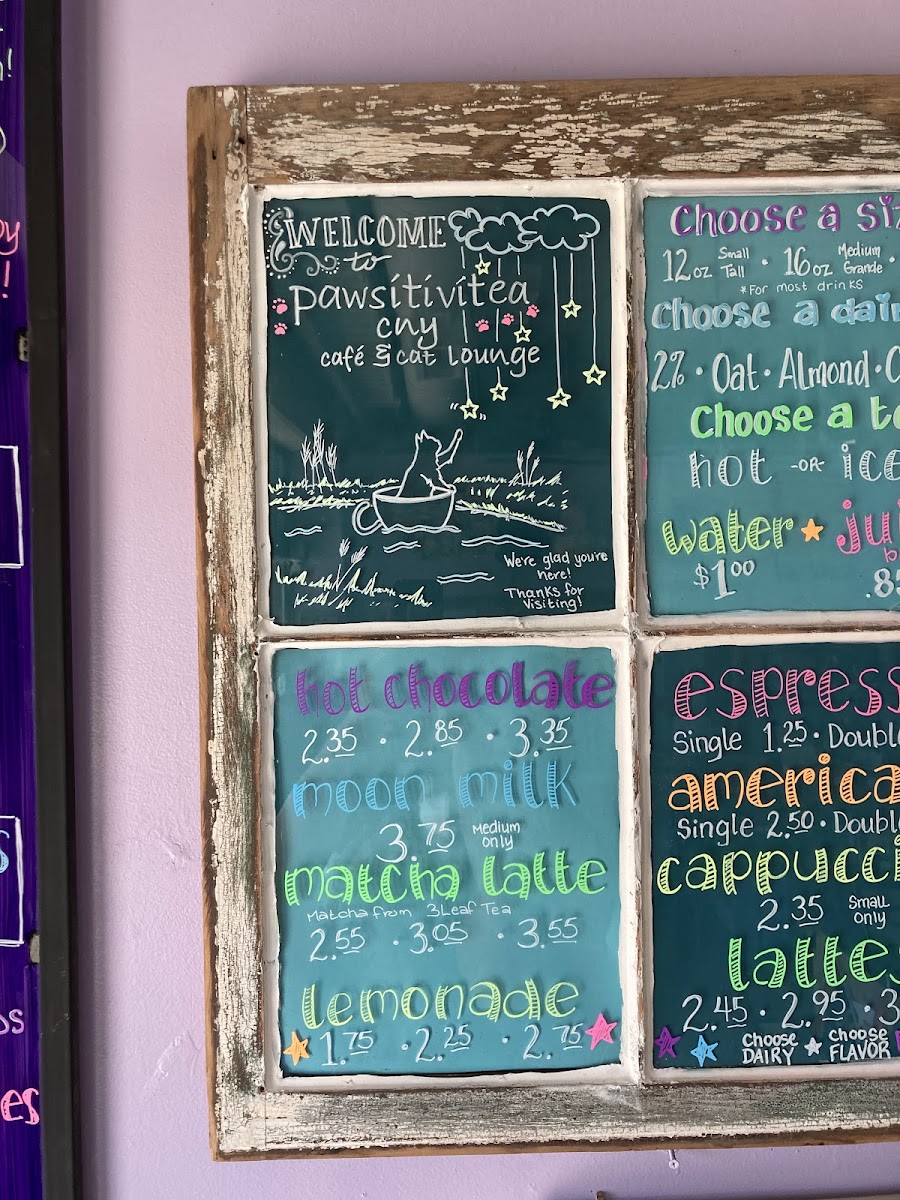 WELCOME
to
pawsitivitea
cny
café & cat lounge
We're glad you're
here!
Thanks for
Visiting!
Choose a
12oz Small Tall · 16oz Medium Grande ·
*For most drinks
Choose a
2% · Oat · Almond ·
Choose a
hot -OR-
water
$1.00
.85
hot chocolate
2.35 · 2.85 · 3.35
moon milk
3.75 Medium only
matcha latte
Matcha from 3Leaf Tea
2.55 · 3.05 · 3.55
lemonade
1.75 · 2.25 · 2.75
espress
Single 1.25 · Doubl
america
Single 2.50 · Doubl
cappucci
2.35 Small only
lattes
2.45 · 2.95 · 3
Choose DAIRY Choose FLAVOR